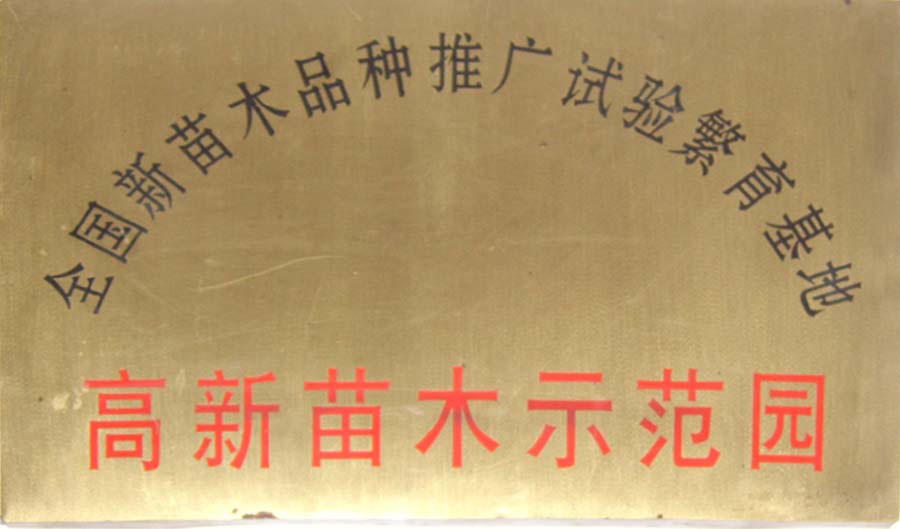 全国新苗木品种推广试验繁育基地
高新苗木示范园